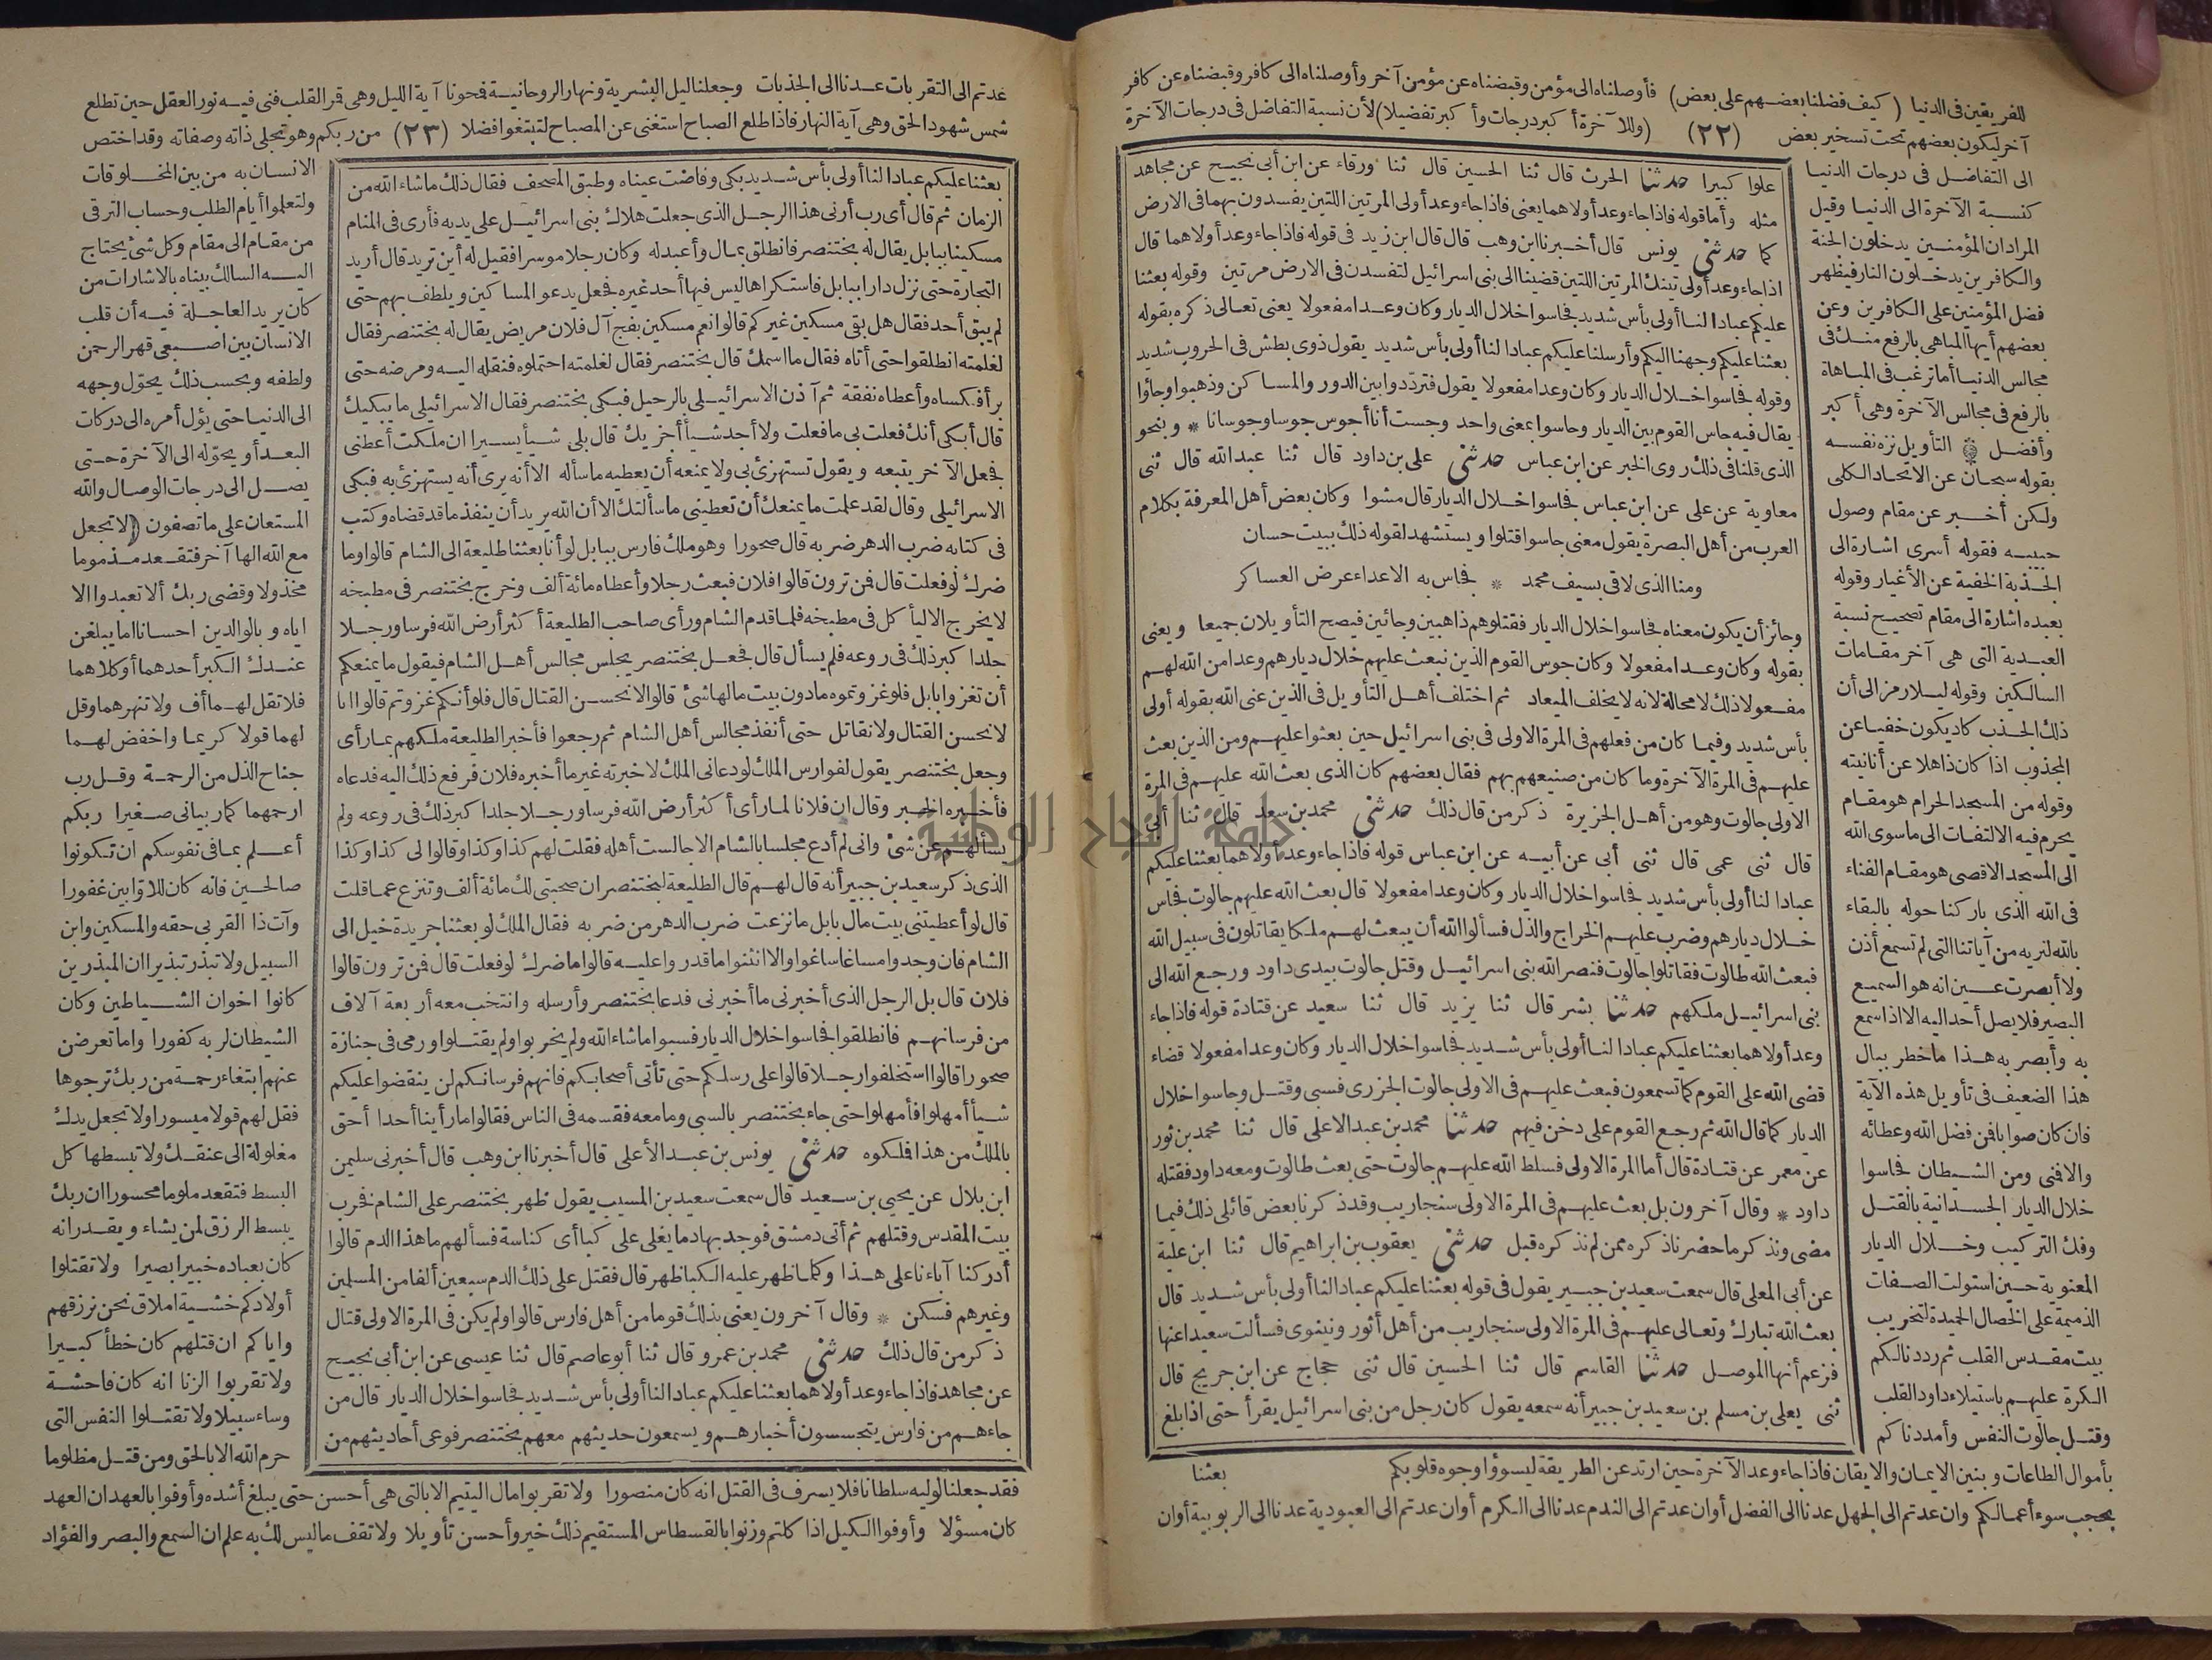 للفريقين فى الدنيا (كيف فضلنا بعضهم على بعض) فأوصلناه الى مؤمن وقبضناه عن مؤمن آخر وأوصلناه الى كافر وقبضناه عن كافر
آخر ليكون بعضهم تحت تسخير بعض (٢٢) (وللآخرة أكبر درجات وأكبر تفضيلا) لأن نسبة التفاضل فى درجات الآخرة
الى التفاضل فى درجات الدنيا
كنسبة الآخرة الى الدنيا وقيل
المراد ان المؤمنين يدخلون الجنة
والكافرين يدخلون النار فيظهر
فضل المؤمنين على الكافرين وعن
بعضهم أيها المباهى بالرفع منك فى
مجالس الدنيا أما ترغب فى المباهاة
بالرفع فى مجالس الآخرة وهى أكبر
وأفضل التأويل نزه نفسه
بقوله سبحان عن الاتحاد الكلى
ولكن أخبر عن مقام وصول
حبيبه فقوله أسرى اشارة الى
الجذبة الخفية عن الأغيار وقوله
بعبده اشارة الى مقام تصحيح نسبة
العبدية التى هى آخر مقامات
السالكين وقوله ليلا رمز الى أن
ذلك الجذب كاد يكون خفيا عن
المجذوب اذا كان ذاهلا عن أنانيته
وقوله من المسجد الحرام هو مقام
يحرم فيه الالتفات الى ما سوى الله
الى المسجد الاقصى هو مقام الفناء
فى الله الذى باركنا حوله بالبقاء
بالله لنريه من آياتنا التى لم تسمع أذن
ولا أبصرت عين انه هو السميع
البصير فلا يصل أحد اليه الا اذا سمع
به وأبصر به هذا ما خطر ببال
هذا الضعيف فى تأويل هذه الآية
فان كان صوابا فمن فضل الله وعطائه
والا فمنى ومن الشيطان فجاسوا
خلال الديار الجسدانية بالقتل
وفك التركيب وخلال الديار
المعنوية حين استولت الصفات
الذميمة على الخصال الحميدة لتخريب
بيت مقدس القلب ثم رددنا لكم
الكرة عليهم باستيلاء داود القلب
وقتل جالوت النفس وأمددناكم
بأموال الطاعات وبنين الايمان والايقان فاذا جاء وعد الآخرة حين ارتد عن الطريقة ليسوؤا وجوه قلوبكم
بحجب سوء أعمالكم وان عدتم الى الجهل عدنا الى الفضل أوان عدتم الى الندم عدنا الى الكرم أوان عدتم الى العبودية عدنا الى الربوبية أوان
علوا كبيرا حدثنا الحرث قال ثنا الحسين قال ثنا ورقاء عن ابن أبى نجيح عن مجاهد
مثله وأما قوله فاذا جاء وعد أولاهما يعنى فاذا جاء وعد أولى المرتين اللتين يفسدون بهما فى الارض
كما حدثنى يونس قال أخبرنا ابن وهب قال قال ابن زيد فى قوله فاذا جاء وعد أولاهما قال
اذا جاء وعد أولى تينك المرتين اللتين قضينا الى بنى اسرائيل لتفسدن فى الارض مرتين وقوله بعثنا
عليكم عبادا لنا أولى بأس شديد فجاسوا خلال الديار وكان وعدا مفعولا يعنى تعالى ذكره بقوله
بعثنا عليكم وجهنا اليكم وأرسلنا عليكم عبادا لنا أولى بأس شديد يقول ذوى بطش فى الحروب شديد
وقوله فجاسوا خلال الديار وكان وعدا مفعولا يقول فترددوا بين الدور والمساكن وذهبوا وجاؤا
يقال فيه جاس القوم بين الديار وحاسوا بمعنى واحد وجست أنا أجوس جوسا وجوسانا * وبنحو
الذى قلنا فى ذلك روى الخبر عن ابن عباس حدثنى على بن داود قال ثنا عبد الله قال ثنى
معاوية عن على عن ابن عباس فجاسوا خلال الديار قال مشوا وكان بعض أهل المعرفة بكلام
العرب من أهل البصرة يقول معنى جاسوا قتلوا ويستشهد لقوله ذلك ببيت حسان
ومنا الذى لاقى بسيف محمد * فجاس به الاعداء عرض العساكر
وجائز أن يكون معناه فجاسوا خلال الديار فقتلوهم ذاهبين وجائين فيصح التأويلان جميعا ويعنى
بقوله وكان وعدا مفعولا وكان جوس القوم الذين نبعث عليهم خلال ديارهم وعدا من الله لهم
مفعولا ذلك لا محالة لانه لا يخلف الميعاد ثم اختلف أهل التأويل فى الذين عنى الله بقوله أولى
بأس شديد وفيما كان من فعلهم فى المرة الاولى فى بنى اسرائيل حين بعثوا عليهم ومن الذين بعث
عليهم فى المرة الآخرة وما كان من صنيعهم بهم فقال بعضهم كان الذى بعث الله عليهم فى المرة
الاولى جالوت وهو من أهل الجزيرة ذكر من قال ذلك حدثنى محمد بن سعد قال ثنا أبى
قال ثنى عمى قال ثنى أبى عن أبيه عن ابن عباس قوله فاذا جاء وعد أولاهما بعثنا عليكم
عبادا لنا أولى بأس شديد فجاسوا خلال الديار وكان وعدا مفعولا قال بعث الله عليهم جالوت فجاس
خلال ديارهم وضرب عليهم الخراج والذل فسألوا الله أن يبعث لهم ملكا يقاتلون فى سبيل الله
فبعث الله طالوت فقاتلوا جالوت فنصر الله بنى اسرائيل وقتل جالوت بيدى داود ورجع الله الى
بنى اسرائيل ملكهم حدثنا بشر قال ثنا يزيد قال ثنا سعيد عن قتادة قوله فاذا جاء
وعد أولاهما بعثنا عليكم عبادا لنا أولى بأس شديد فجاسوا خلال الديار وكان وعدا مفعولا قضاء
قضى الله على القوم كما تسمعون فبعث عليهم فى الاولى جالوت الجزرى فسبى وقتل وجاسوا خلال
الديار كما قال الله ثم رجع القوم على دخن فيهم حدثنا محمد بن عبد الاعلى قال ثنا محمد بن ثور
عن معمر عن قتادة قال أما المرة الاولى فسلط الله عليهم جالوت حتى بعث طالوت ومعه داود فقتله
داود * وقال آخرون بل بعث عليهم فى المرة الاولى سنحاريب وقد ذكرنا بعض قائلى ذلك فيما
مضى ونذكر ما حضرنا ذكره ممن لم نذكره قبل حدثنى يعقوب بن ابراهيم قال ثنا ابن علية
عن أبى المعلى قال سمعت سعيد بن جبير يقول فى قوله بعثنا عليكم عبادا لنا أولى بأس شديد قال
بعث الله تبارك وتعالى عليهم فى المرة الاولى سنحاريب من أهل أثور ونينوى فسألت سعيدا عنها
فزعم أنها الموصل حدثنا القاسم قال ثنا الحسين قال ثنى حجاج عن ابن جريج قال
ثنى يعلى بن مسلم بن سعيد بن جبير أنه سمعه يقول كان رجل من بنى اسرائيل يقرأ حتى اذا بلغ
بعثنا
عدتم الى التقربات عدنا الى الجذبات وجعلنا ليل البشرية ونهار الروحانية فمحونا آية الليل وهى قمر القلب فنى فيه نور العقل حين تطلع
شمس شهود الحق وهى آية النهار فاذا طلع الصباح استغنى عن المصباح لتبتغوا فضلا (٢٣) من ربكم وهو تجلى ذاته وصفاته وقد اختص
الانسان به من بين المخلوقات
ولتعلموا أيام الطلب وحساب الترقى
من مقام الى مقام وكل شئ يحتاج
اليه السالك بيناه بالاشارات من
كان يريد العاجلة فيه أن قلب
الانسان بين اصبعى قهر الرحمن
ولطفه وبحسب ذلك يحول وجهه
الى الدنيا حتى يؤل أمره الى دركات
البعد أو يحوله الى الآخرة حتى
يصل الى درجات الوصال والله
المستعان على ما تصفون (لا تجعل
مع الله الها آخر فتقعد مذموما
مخذولا وقضى ربك ألا تعبدوا الا
اياه وبالوالدين احسانا اما يبلغن
عندك الكبر أحدهما أو كلاهما
فلا تقل لهما أف ولا تنهرهما وقل
لهما قولا كريما واخفض لهما
جناح الذل من الرحمة وقل رب
ارحمهما كما ربيانى صغيرا ربكم
أعلم بما فى نفوسكم ان تكونوا
صالحين فانه كان للاوابين غفورا
وآت ذا القربى حقه والمسكين وابن
السبيل ولا تبذر تبذيرا ان المبذرين
كانوا اخوان الشياطين وكان
الشيطان لربه كفورا واما تعرضن
عنهم ابتغاء رحمة من ربك ترجوها
فقل لهم قولا ميسورا ولا تجعل يدك
مغلولة الى عنقك ولا تبسطها كل
البسط فتقعد ملوما محسورا ان ربك
يبسط الرزق لمن يشاء ويقدر انه
كان بعباده خبيرا بصيرا ولا تقتلوا
أولادكم خشية املاق نحن نرزقهم
واياكم ان قتلهم كان خطأ كبيرا
ولا تقربوا الزنا انه كان فاحشة
وساء سبيلا ولا تقتلوا النفس التى
حرم الله الا بالحق ومن قتل مظلوما
فقد جعلنا لوليه سلطانا فلا يسرف فى القتل انه كان منصورا ولا تقربوا مال اليتيم الا بالتى هى أحسن حتى يبلغ أشده وأوفوا بالعهد ان العهد
كان مسؤلا وأوفوا الكيل اذا كلتم وزنوا بالقسطاس المستقيم ذلك خير وأحسن تأويلا ولا تقف ما ليس لك به علم ان السمع والبصر والفؤاد
بعثنا عليكم عبادا لنا أولى بأس شديد بكى وفاضت عيناه وطبق المصحف فقال ذلك ما شاء الله من
الزمان ثم قال أى رب أرنى هذا الرجل الذى جعلت هلاك بنى اسرائيل على يديه فأرى فى المنام
مسكينا ببابل يقال له بختنصر فانطلق بمال وأعبد له وكان رجلا موسرا فقيل له أين تريد قال أريد
التجارة حتى نزل دارا ببابل فاستكراها ليس فيها أحد غيره فجعل يدعو المساكين ويلطف بهم حتى
لم يبق أحد فقال هل بقى مسكين غيركم قالوا نعم مسكين بفج آل فلان مريض يقال له بختنصر فقال
لغلمته انطلقوا حتى أتاه فقال ما اسمك قال بختنصر فقال لغلمته احتملوه فنقله اليه ومرضه حتى
برأ فكساه وأعطاه نفقة ثم آذن الاسرائيلى بالرحيل فبكى بختنصر فقال الاسرائيلى ما يبكيك
قال أبكى أنك فعلت بى ما فعلت ولا أجد شيأ أجزيك قال بلى شيأ يسيرا ان ملكت أعطنى
فجعل الآخر يتبعه ويقول تستهزئ بى ولا يمنعه أن يعطيه ما سأله الا أنه يرى أنه يستهزئ به فبكى
الاسرائيلى وقال لقد علمت ما يمنعك أن تعطينى ما سألتك الا أن الله يريد أن ينفذ ما قد قضاه وكتب
فى كتابه ضرب الدهر ضربه قال صحورا وهو ملك فارس ببابل لو أنا بعثنا طليعة الى الشام قالوا وما
ضرك لو فعلت قال فمن ترون قالوا فلان فبعث رجلا وأعطاه مائة ألف وخرج بختنصر فى مطبخه
لا يخرج الا ليأكل فى مطبخه فلما قدم الشام ورأى صاحب الطليعة أكثر أرض الله فرسا ورجلا
جلدا كبر ذلك فى روعه فلم يسأل قال فجعل بختنصر يجلس مجالس أهل الشام فيقول ما يمنعكم
أن تغزوا بابل فلو غزوتموه ما دون بيت مالها شئ قالوا لا نحسن القتال قال فلو أنكم غزوتم قالوا انا
لا نحسن القتال ولا نقاتل حتى أنفذ مجالس أهل الشام ثم رجعوا فأخبر الطليعة ملكهم بما رأى
وجعل بختنصر يقول لفوارس الملك لو دعانى الملك لاخبرته غير ما أخبره فلان فرفع ذلك اليه فدعاه
فأخبره الخبر وقال ان فلانا لما رأى أكثر أرض الله فرسا ورجلا جلدا كبر ذلك فى روعه ولم
يسألهم عن شئ وانى لم أدع مجلسا بالشام الا جالست أهله فقلت لهم كذا وكذا وقالوا لى كذا وكذا
الذى ذكر سعيد بن جبير أنه قال لهم قال الطليعة لبختنصر ان صحبتنى لك مائة ألف وتنزع عما قلت
قال لو أعطيتنى بيت مال بابل ما نزعت ضرب الدهر من ضربه فقال الملك لو بعثنا جريدة خيل الى
الشام فان وجدوا مساغا ساغوا والا انثنوا ما قدروا عليه قالوا ما ضرك لو فعلت قال فمن ترون قالوا
فلان قال بل الرجل الذى أخبرنى ما أخبرنى فدعا بختنصر وأرسله وانتخب معه أربعة آلاف
من فرسانهم فانطلقوا فجاسوا خلال الديار فسبوا ما شاء الله ولم يخربوا ولم يقتلوا ورمى فى جنازة
صحورا قالوا استخلفوا رجلا قالوا على رسلكم حتى تأتى أصحابكم فانهم فرسانكم لن ينقضوا عليكم
شيأ أمهلوا فأمهلوا حتى جاء بختنصر بالسبى وما معه فقسمه فى الناس فقالوا ما رأينا أحدا أحق
بالملك من هذا فملكوه حدثنى يونس بن عبد الأعلى قال أخبرنا ابن وهب قال أخبرنى سليمن
ابن بلال عن يحيى بن سعيد قال سمعت سعيد بن المسيب يقول ظهر بختنصر على الشام فخرب
بيت المقدس وقتلهم ثم أتى دمشق فوجد بها دما يغلى على كبا أى كناسة فسألهم ما هذا الدم قالوا
أدركنا آباءنا على هذا وكلما ظهر عليه الكبا ظهر قال فقتل على ذلك الدم سبعين ألفا من المسلمين
وغيرهم فسكن * وقال آخرون يعنى بذلك قوما من أهل فارس قالوا ولم يكن فى المرة الاولى قتال
ذكر من قال ذلك حدثنى محمد بن عمرو قال ثنا أبو عاصم قال ثنا عيسى عن ابن أبى نجيح
عن مجاهد فاذا جاء وعد أولاهما بعثنا عليكم عبادا لنا أولى بأس شديد فجاسوا خلال الديار قال من
جاءهم من فارس يتجسسون أخبارهم ويسمعون حديثهم معهم بختنصر فوعى أحاديثهم من
جامعة النجاح الوطنية